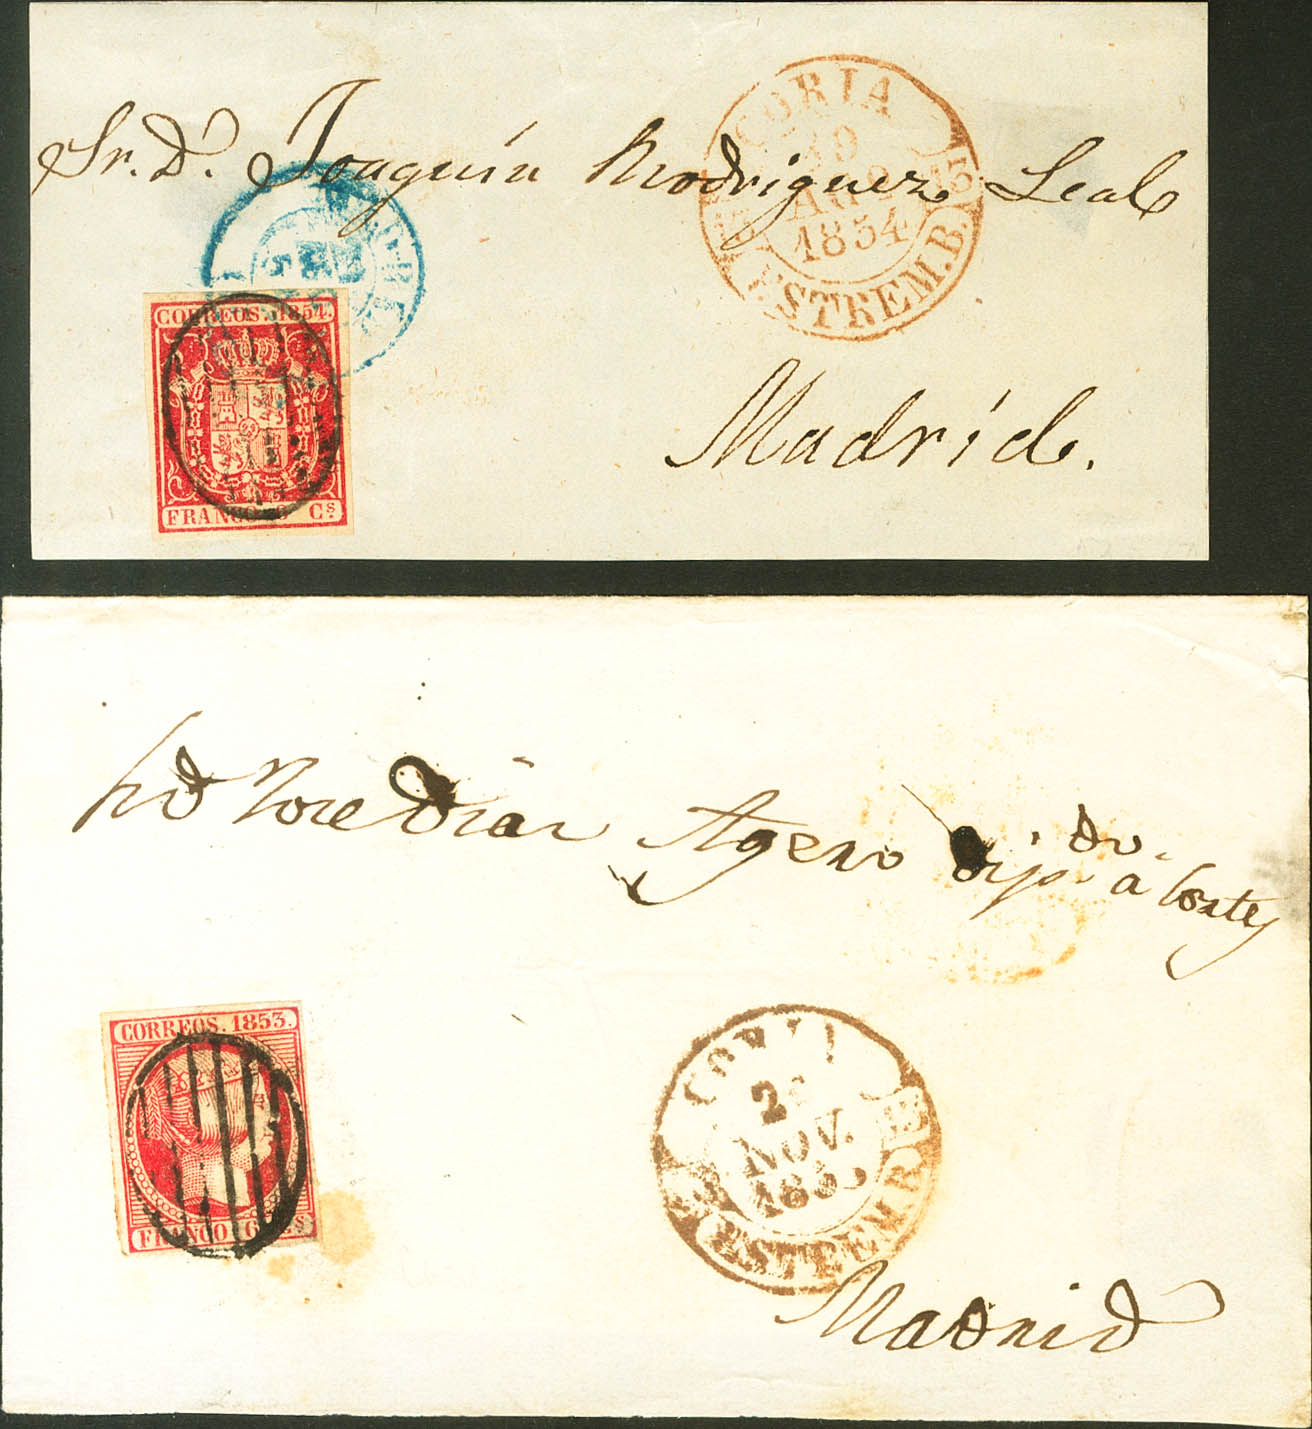 Sr. D. Joaquín Rodriguez Leal
CORIA
19
AGO
1854
ESTREM. B.
CORREOS. 1854.
FRANCO 6 Cs
Madrid.
Jose Diaz Agero dipdo a Cortes
CORREOS. 1853.
FRANCO 6 Cs
CORIA
NOV.
1853
ESTREM
Madrid